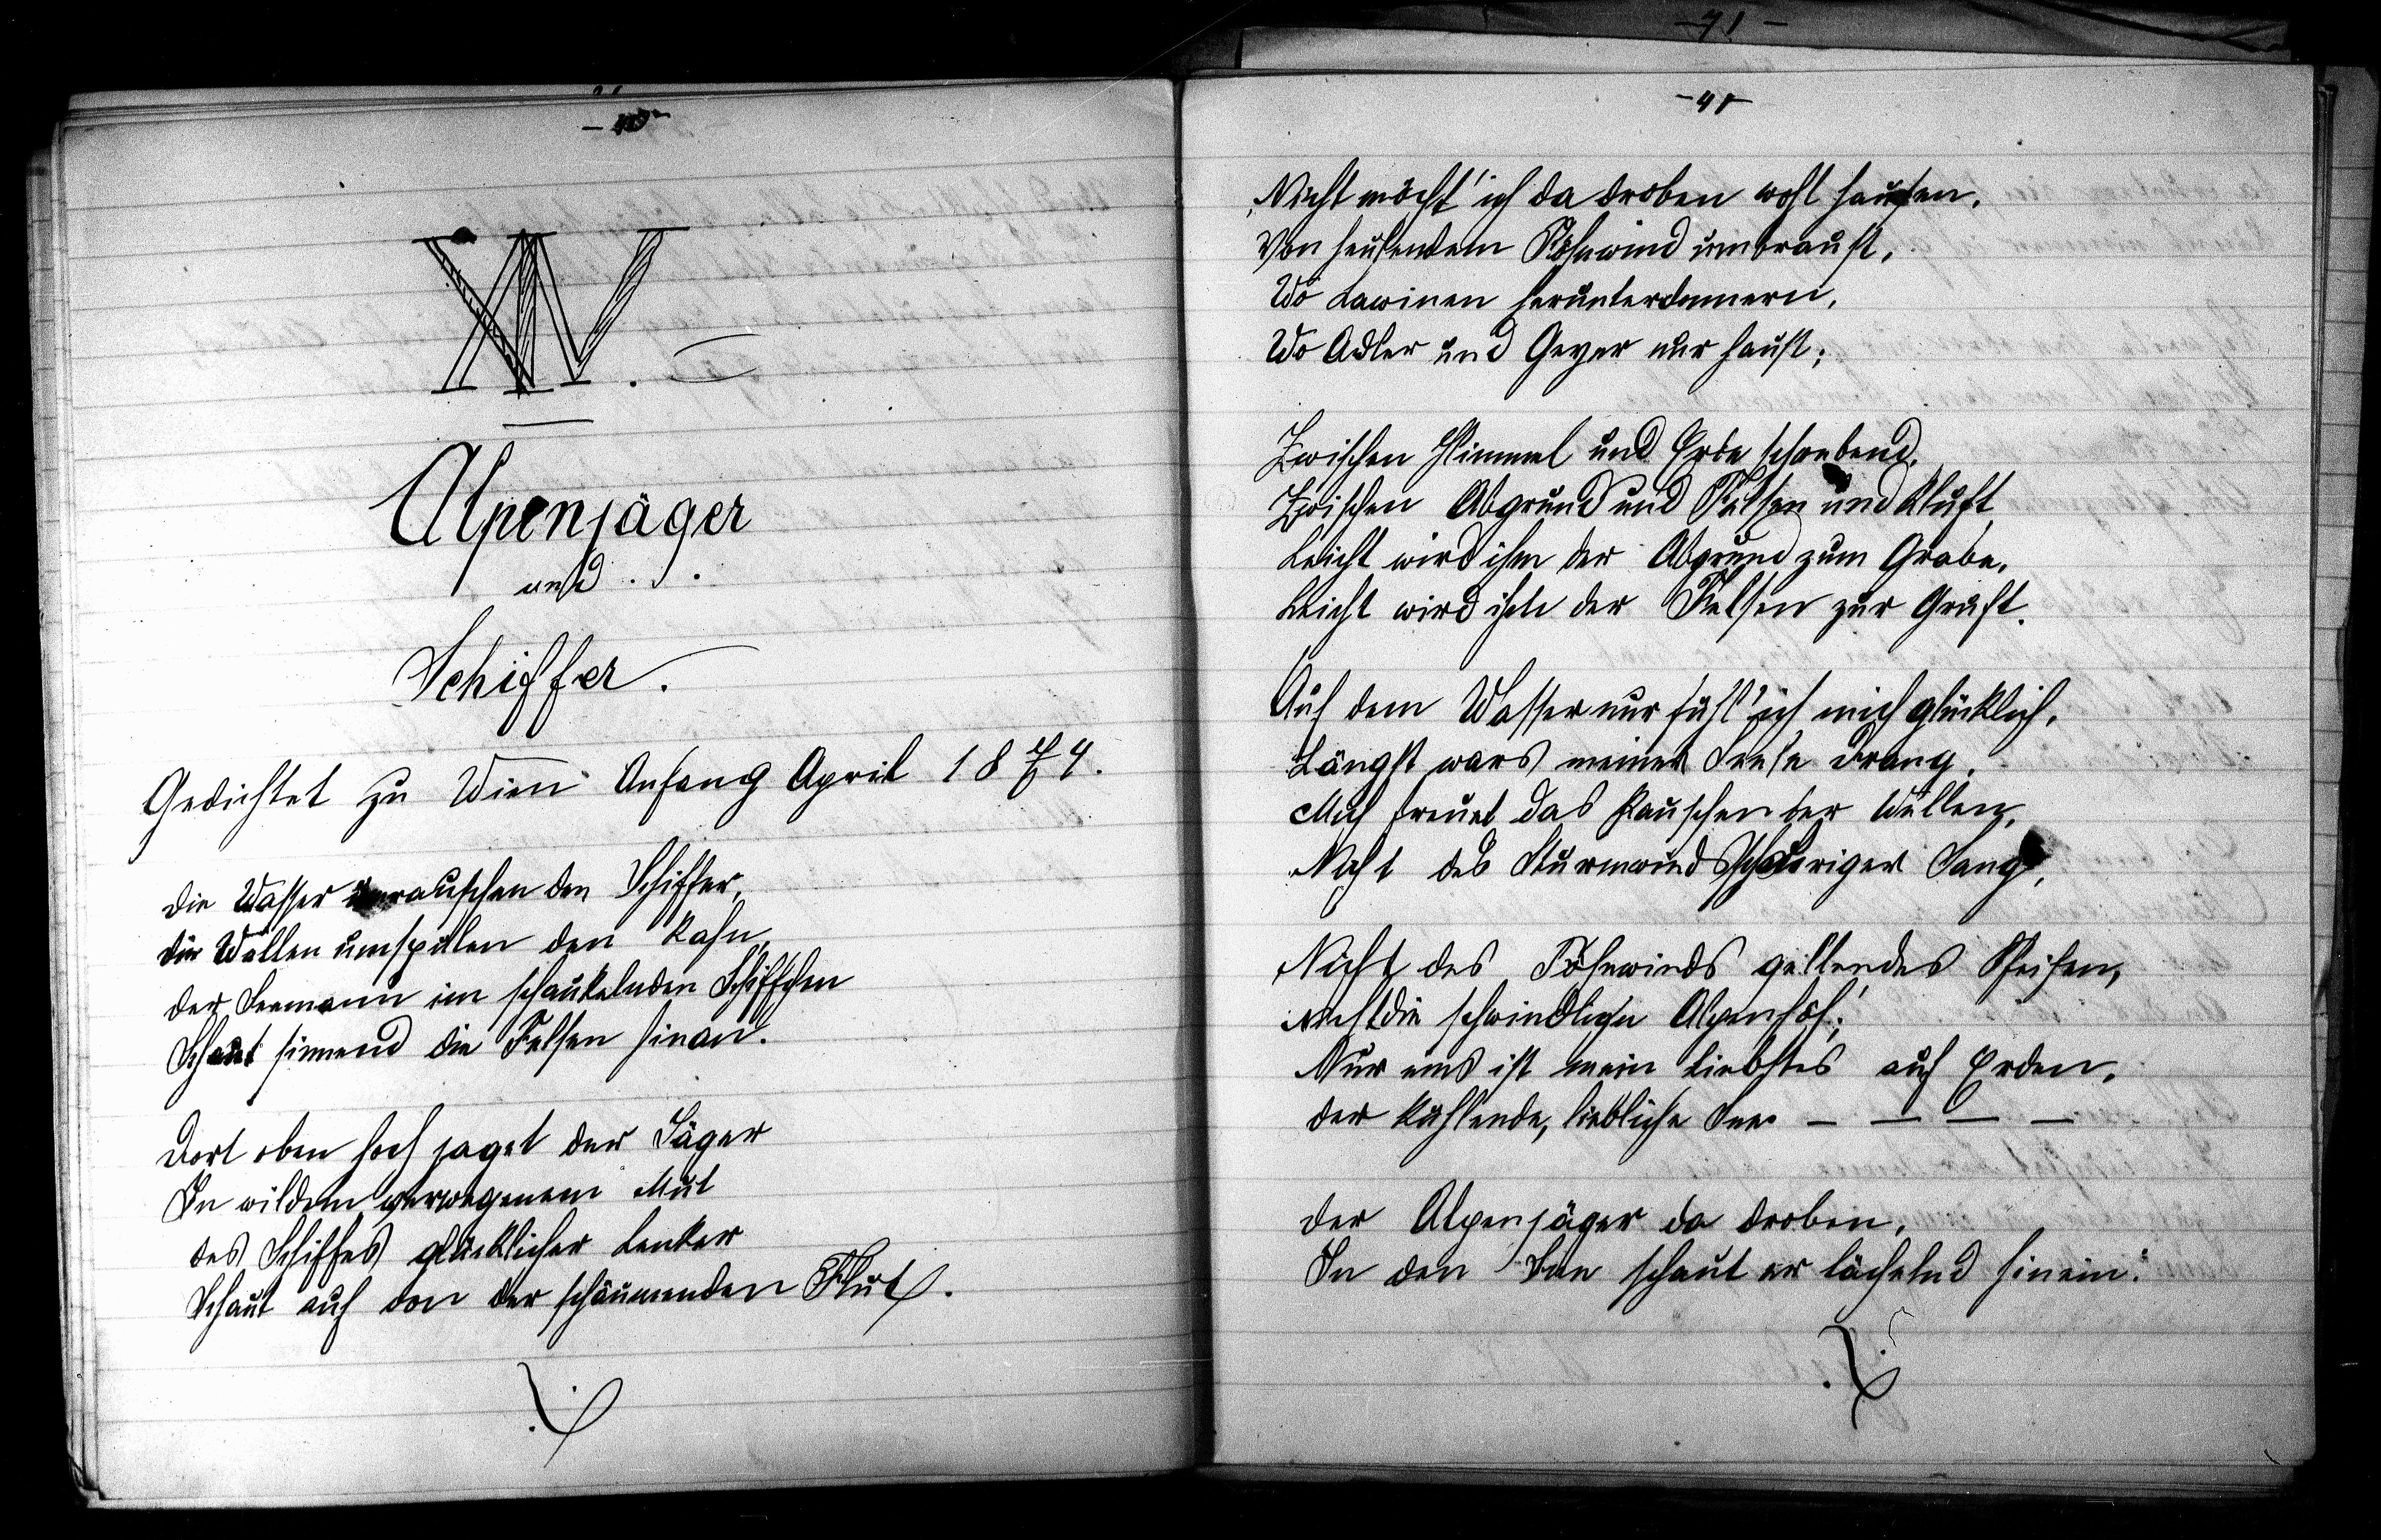 - 40 -
XIV.
Alpenjäger
und
Schiffer.
Gedichtet zu Wien Anfang April 1874.
Die Wasser umrauschen den Schiffer,
Die Wellen umspülen den Kahn,
Der Seemann im schaukelnden Schiffchen
Schaut sinnend die Felsen hinan.
Dort oben hoch jaget der Jäger
In wildem verwegenem Mut
Des Schiffes glücklicher Lenker
Schaut auf von der schäumenden Flut.
- 71 -
- 41 -
„Nicht möcht' ich da droben wohl hausen,
Von heulendem Föhnwind umbraust,
Wo Lawinen herunterdonnern,
Wo Adler und Geyer nur haust;
Zwischen Himmel und Erde schwebend,
Zwischen Abgrund und Felsen und Kluft,
Leicht wird ihm der Abgrund zum Grabe,
Leicht wird ihm der Felsen zur Gruft.
Auf dem Wasser nur fühl' ich mich glücklich,
Längst wars meiner Seele Drang,
Mich freuet das Rauschen der Wellen,
Nicht des Sturmwinds schauriger Sang,
Nicht des Föhnwinds gellendes Pfeifen,
Nicht die schwindlige Alpenhöh';
Nur eins ist mein Liebstes auf Erden,
Der kühlende, liebliche See. — — — —
Der Alpenjäger da droben,
In den See schaut er lächelnd hinein: